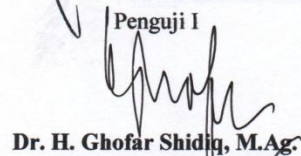 Penguji I
Dr. H. Ghofar Shidiq, M.Ag.